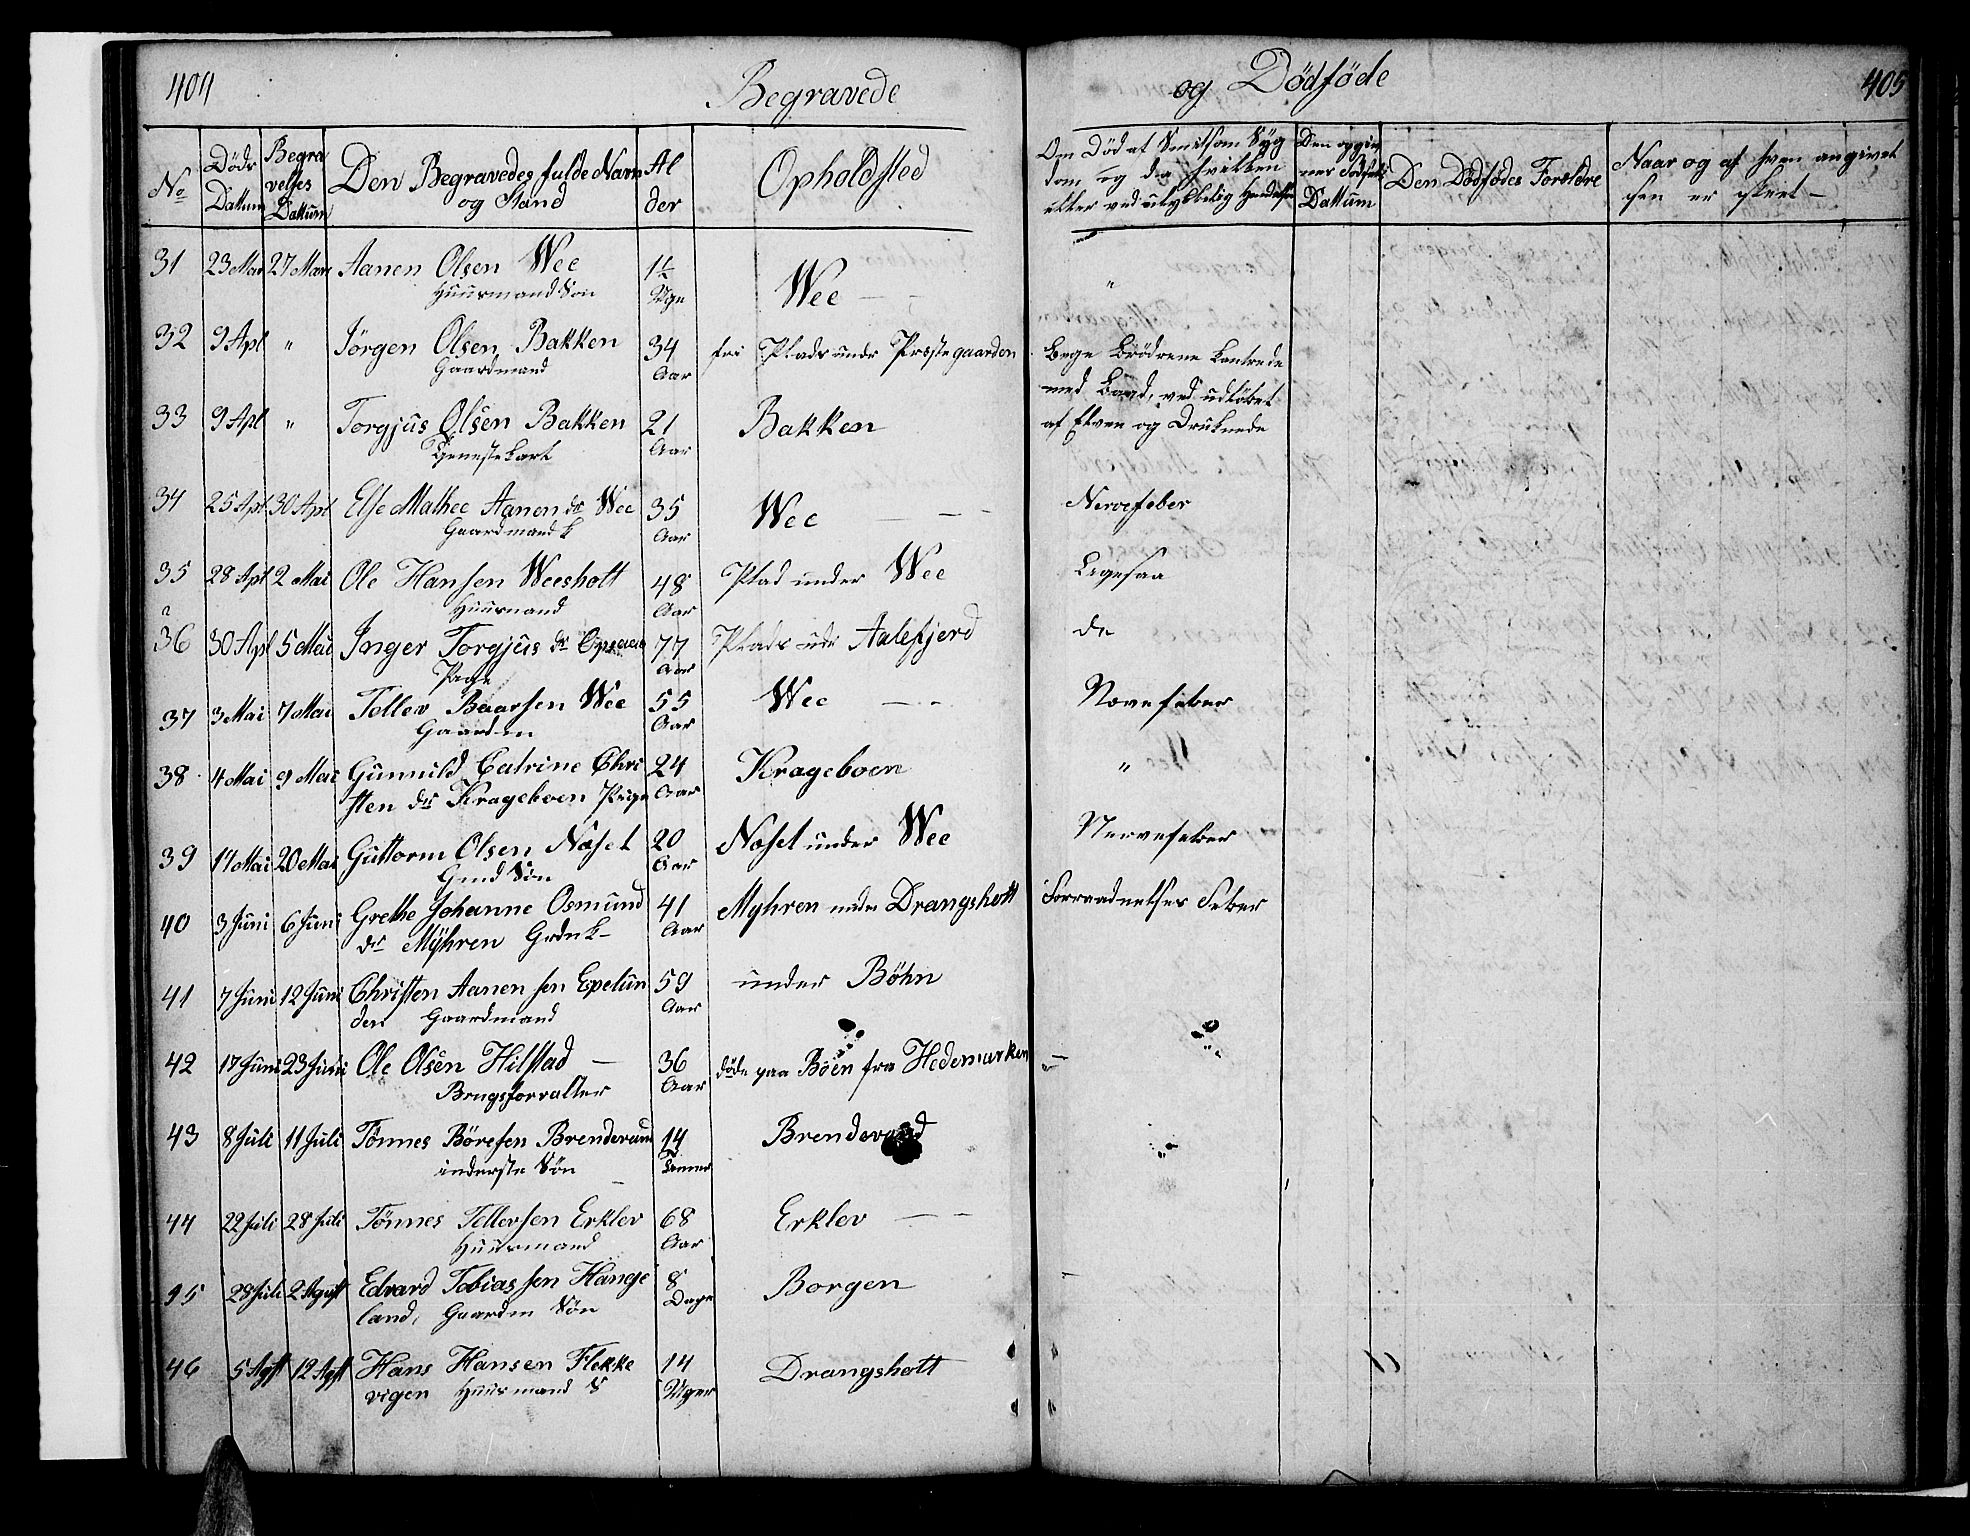 404
Begravede
og Dödföde
405
No
Döds Dattum
Begravelses Dattum
Den Begravedes fulde Navn og Stand
Alder
Opholdsted
Om Död at Smitsom Sygdom og da hvilken eller ved ulykkelig Hændelse
Dattum
Den Dödfödes Forældre
Naar og af hvem angivelsen er skeet
31 23 Mar 27 Mars Aanen Olsen Wee 1½ Wee "
Huusmand Son Uge
32 9 Apl " Jörgen Olsen Bakken 34 fri Plads under Præstegaarden Bege Brödrene kantrede
Gaardmand Aar med Baad, ved udlöbet
33 9 Apl " Torgjus Olsen Bakken 21 Bakken af Elven og Druknede
Tjenestekarl Aar
34 25 Apl 30 Apl Else Mathee Aanen dr Wee 35 Wee Nervefeber
Gaardmand k Aar
35 28 Apl 2 Mai Ole Hansen Weesholt 48 Plad under Wee Ligesaa
Huusmand Aar
36 30 Apl 5 Mai Inger Torgjus dr 77 Plads udr Aalefjerd do
Pige Aar
37 3 Mai 7 Mai Tellev Baarsen Wee 55 Wee Nervefeber
Gaardm Aar
38 4 Mai 9 Mai Gunnild Catrine Chri 24 Krageboen "
sten dr Krageboen Pige Aar
39 17 Mai 20 Mai Guttorm Olsen Næset 20 Næset under Wee Nervefeber
Gmd Sön Aar
40 3 Juni 6 Juni Grethe Johanne Osmund 41 Myhren under Drangsholt Forraadnelses Feber
dr Myhren Grdm k Aar
41 7 Juni 12 Juni Christen Aanensen Epelun 59 under Böhn
den Gaardmand Aar
42 17 Juni 23 Juni Ole Olsen Hilstad 36 döde paa Böen fra Hedemarken
Brugsforvalter Aar
43 8 Juli 11 Juli Tönnes Böresen Brendevand 14 Brendevand
inderste Sön
44 22 Juli 28 Juli Tönnes Tellefsen Erklev 68 Erklev
Huusmand Aar
45 28 Juli 2 Agust Edvard Tobiassen Hange 8 Borgen
land, Gaardm Sön Dage
46 5 Agst 12 Agst Hans Hansen Flekke 14 Drangsholt
vigen Huusmand S Uger